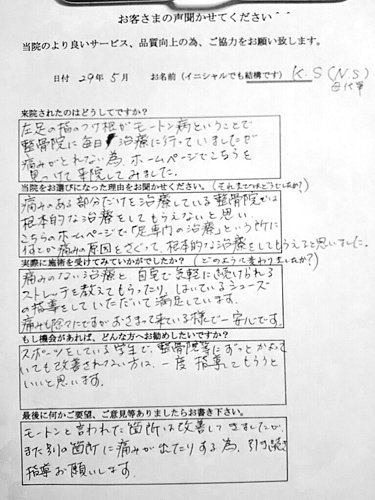 お客さまの声聞かせてください
当院のより良いサービス、品質向上の為、ご協力をお願い致します。
日付 29年 5月 お名前(イニシャルでも結構です) K.S (N.S)
母代筆
来院されたのはどうしてですか?
左足の指のつけ根がモートン病ということで
整骨院に毎日治療に行っていましたが
痛みがとれない為、ホームページでこちらを
見つけて来院してみました。
当院をお選びになった理由をお聞かせください。(それまではどうでしたか?)
痛みのある部分だけを治療している整骨院では
根本的な治療をしてもらえないと思い
こちらのホームページで「足専門の治療」という所に
何とか痛みの原因をさぐって、根本的な治療をしてもらえると思いました。
実際に施術を受けてみていかがでしたか?(どのように変わりましたか?)
痛みのない治療と、自宅で気軽に続けられる
ストレッチを教えてもらったり、はいているシューズ
の指導をしていただいて満足しています。
痛みも除々にですがおさまって来ている様で一安心です。
もし機会があれば、どんな方へお勧めしたいですか?
スポーツをしている学生で、整骨院等にずっとかよって
いても改善されない方は、一度指導してもらうと
いいと思います。
最後に何かご要望、ご意見等ありましたらお書き下さい。
モートンと言われた箇所は改善してきましたが、
また別の箇所に痛みが出たりする為、引き続き
指導お願いします。